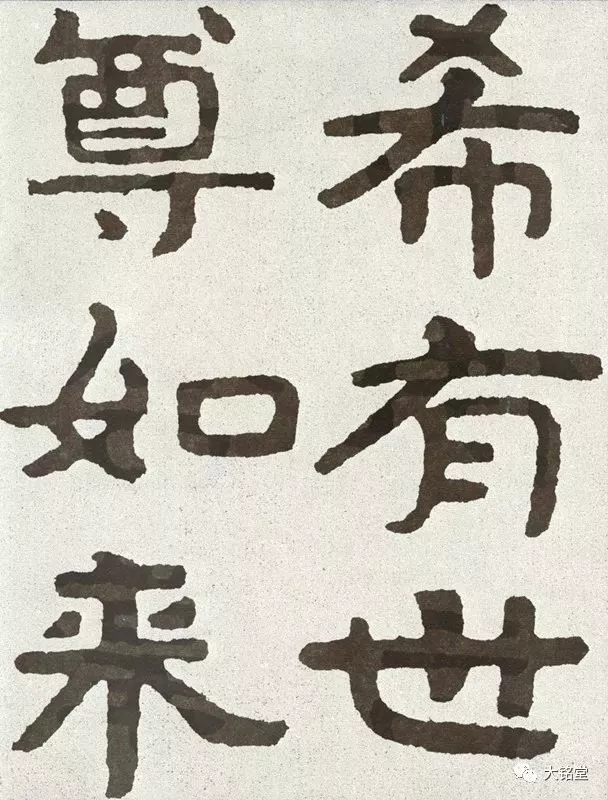 希有世
尊如来
大铭堂